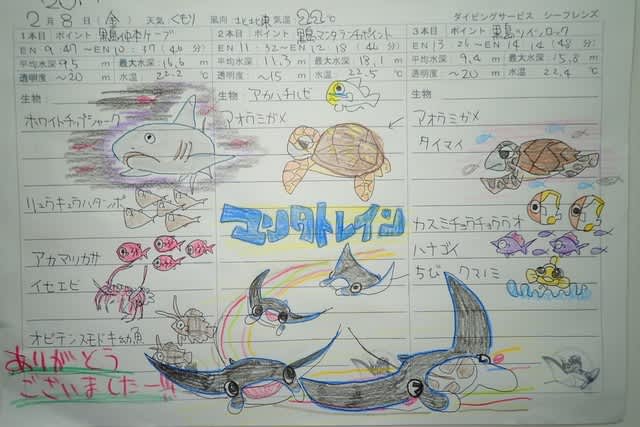 2月8日(金) 天気 くもり 風向 北→北東 気温 22℃ ダイビングサービス シーフレンズ
1本目 ポイント 黒島仲本ケーブ
EN 9:47 ～EX 10:37 (46分)
平均水深 9.5 m 最大水深 16.6 m
透明度 ～20 m 水温 22.2 ℃
生物
ホワイトチップシャーク
リュウキュウハタンポ
アカマツカサ
イセエビ
オビテンスモドキ幼魚
ありがとう
ございましたー!!!
2本目 ポイント 黒島マンタランチポイント
EN 11:32～EN 12:18 (46分)
平均水深 11.3 m 最大水深 18.1 m
透明度 ～15 m 水温 22.5 ℃
生物 アカハチハゼ
アオウミガメ
マンタトレイン
3本目 ポイント 黒島ツインロック
EN 13:26～EN 14:14 (48分)
平均水深 9.4 m 最大水深 15.8 m
透明度 ～20 m 水温 22.4 ℃
生物
アオウミガメ
タイマイ
カスミチョウチョウウオ
ハナゴイ
ちび クマノミ